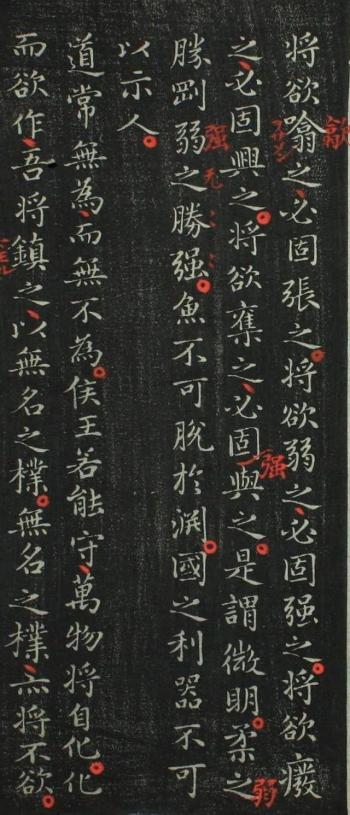 将欲噏之必固張之将欲弱之必固强之将欲癈
之必固興之将欲奪之必固與之是謂微明柔之
勝剛弱之勝强魚不可脫於淵國之利器不可
以示人
道常無為而無不為侯王若能守萬物将自化化
而欲作吾将鎮之以無名之樸無名之樸亦将不欲
歙
强
弱
强